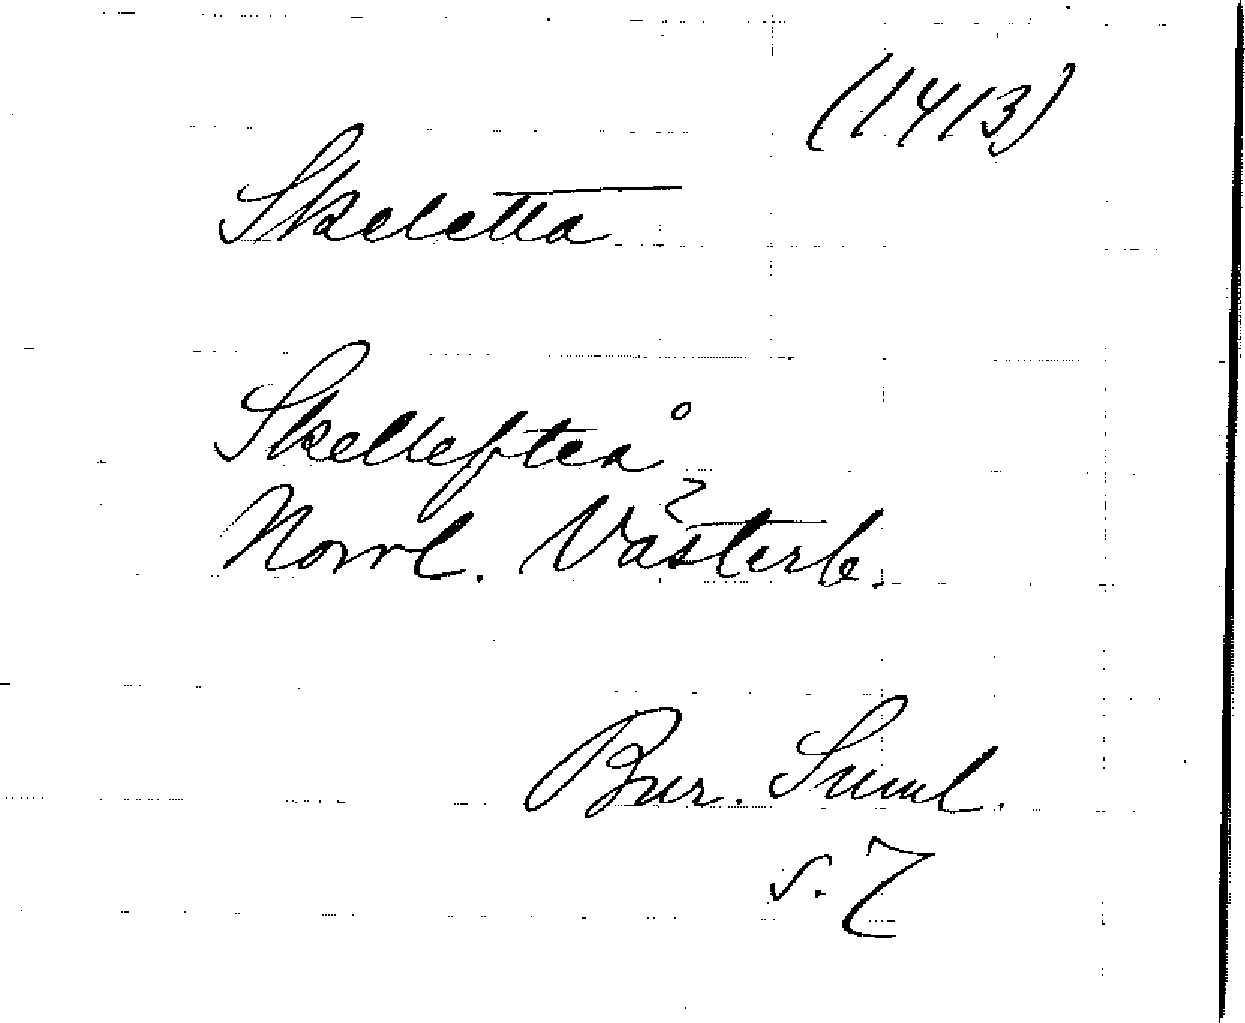 (1413)
Skeletta
Skellefteå
Norrl. Västerb.
Bur. Suml.
s. 7